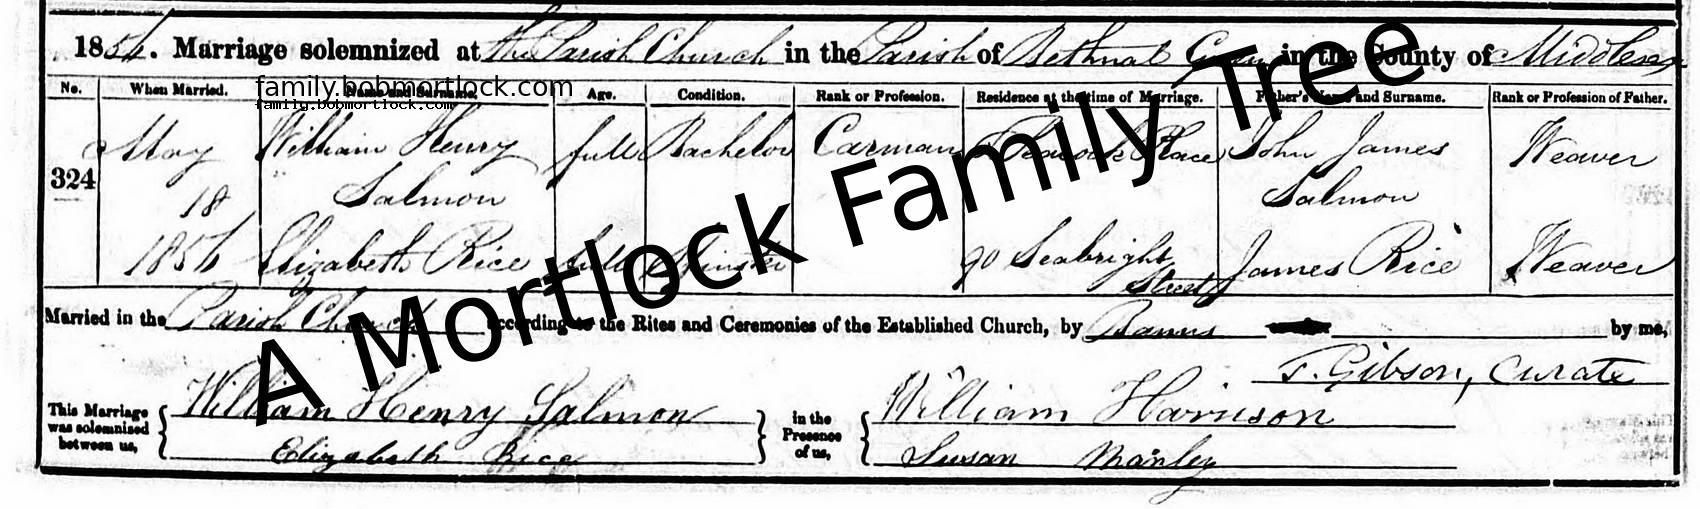 1856. Marriage solemnized at the Parish Church in the Parish of Bethnal Green in the County of Middlesex
No. When Married. Name and Surname. Age. Condition. Rank or Profession. Residence at the time of Marriage. Father's Name and Surname. Rank or Profession of Father.
family.bobmortlock.com
family.bobmortlock.com
324 May 18 1856 William Henry Salmon full Bachelor Carman Peacock Place John James Salmon Weaver
Elizabeth Rice full Spinster 90 Seabright Street James Rice Weaver
Married in the Parish Church according to the Rites and Ceremonies of the Established Church, by Banns by me,
J. Gibson, Curate
This Marriage was solemnized between us, William Henry Salmon in the Presence of us, William Harrison
Elizabeth Rice Susan Manley
A Mortlock Family Tree